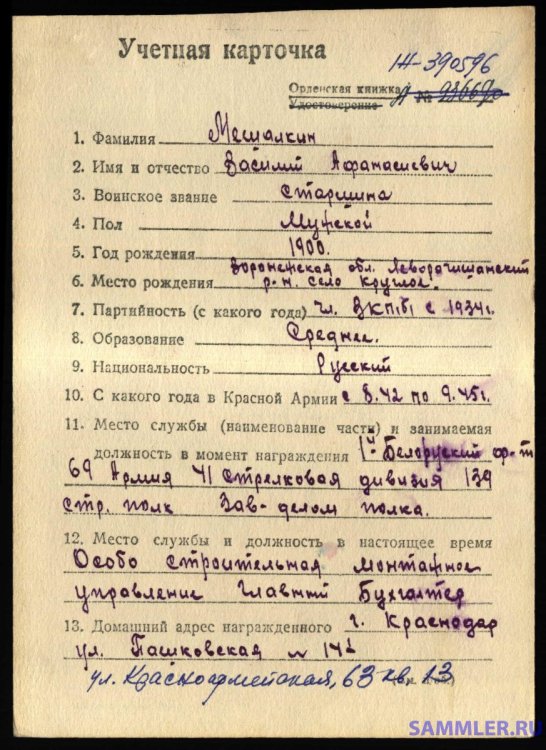 Учетная карточка
Ж-390596
Орденская книжка
Удостоверение А № 936690
1. Фамилия Мешалкин
2. Имя и отчество Василий Афанасиевич
3. Воинское звание старшина
4. Пол Мужской
5. Год рождения 1900.
Воронежская обл.
6. Место рождения р-н. село Круглое.
7. Партийность (с какого года) чл. ВКП(б) с 1934г.
8. Образование Среднее.
9. Национальность Русский
10. С какого года в Красной Армии с 8.42 по 9.45г.
11. Место службы (наименование части) и занимаемая
должность в момент награждения 1й Белоруский фр-т
69 Армия 41 стрелковая дивизия 139
стр. полк Зав-делом полка.
12. Место службы и должность в настоящее время
Особо строительная монтажное
управление Главный Бухгалтер
13. Домашний адрес награжденного г. Краснодар
ул. Пашковская № 142
ул. Красноармейская, 63 кв. 13
SAMMLER.RU